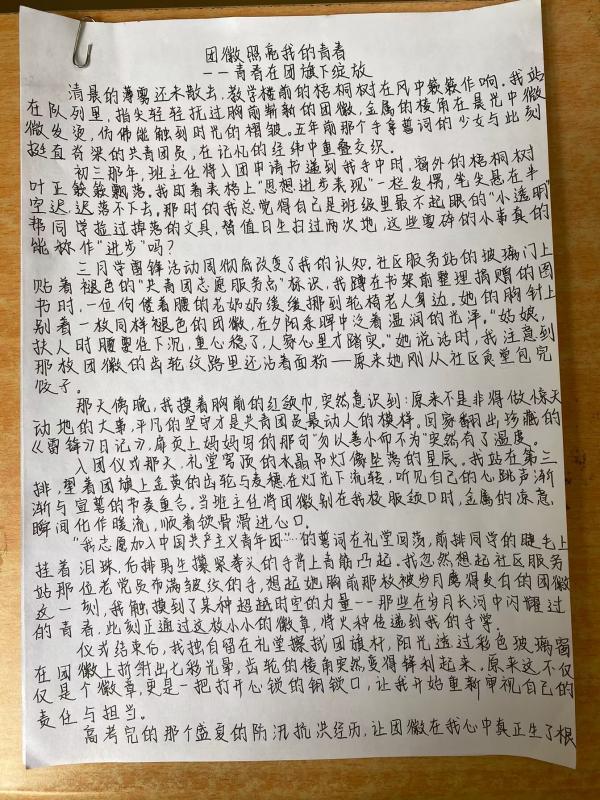 团徽照亮我的青春
——青春在团旗下绽放
清晨的薄雾还未散去,教学楼前的梧桐树在风中簌簌作响。我站
在队列里,指尖轻轻抚过胸前崭新的团徽,金属的棱角在晨光中微
微发烫,仿佛能触到时光的褶皱。五年前那个手拿誓词的少女与此刻
挺直脊梁的共青团员,在记忆的经纬中重叠交织。
初三那年,班主任将入团申请书递到我手中时,窗外的梧桐树
叶正簌簌飘落。我盯着表格上"思想进步表现"一栏发愣,笔尖悬在半
空迟迟落不下去。那时的我总觉得自己是班级里最不起眼的"小透明"
帮同学捡过掉落的文具,替值日生扫过两次地,这些零碎的小事真的
能称作"进步"吗?
三月学雷锋活动周彻底改变了我的认知。社区服务站的玻璃门上
贴着褪色的"共青团志愿服务岗"标识,我蹲在书架前整理捐赠的图
书时,一位佝偻着腰的老奶奶缓缓挪到轮椅老人身边。她的胸针上
别着一枚同样褪色的团徽,在夕阳余晖中泛着温润的光泽。"姑娘,
扶人时腰要往下沉,重心稳了,人家心里才踏实。"她说话时,我注意到
那枚团徽的齿轮纹路里还沾着面粉——原来她刚从社区食堂包完
饺子。
那天傍晚,我摸着胸前的红领巾,突然意识到:原来不是非得做惊天
动地的大事,平凡的坚守才是共青团员最动人的模样。回家翻出珍藏的
《雷锋日记》,扉页上妈妈写的那句"勿以善小而不为"突然有了温度。
入团仪式那天,礼堂穹顶的水晶吊灯像坠落的星辰。我站在第三
排,望着团旗上金黄的齿轮与麦穗在灯光下流转,听见自己的心跳声渐
渐与宣誓的节奏重合。当班主任将团徽别在我校服领口时,金属的凉意
瞬间化作暖流,顺着锁骨滑进心口。
"我志愿加入中国共产主义青年团……"的誓词在礼堂回荡,前排同学的睫毛上
挂着泪珠,后排男生攥紧拳头的手背上青筋凸起。我忽然想起社区服务
站那位老党员布满皱纹的手,想起她胸前那枚被岁月磨得发白的团徽
这一刻,我触摸到了某种超越时空的力量——那些在岁月长河中闪耀过
的青春,此刻正通过这枚小小的徽章,将火种传递到我的手掌。
仪式结束后,我独自留在礼堂擦拭团旗杆,阳光透过彩色玻璃窗
在团徽上折射出七彩光晕,齿轮的棱角突然变得锋利起来,原来这不仅
仅是个徽章,更是一把打开心锁的钥锁口,让我开始重新审视自己的
责任与担当。
高考完的那个盛夏的防汛抗洪经历,让团徽在我心中真正生了根